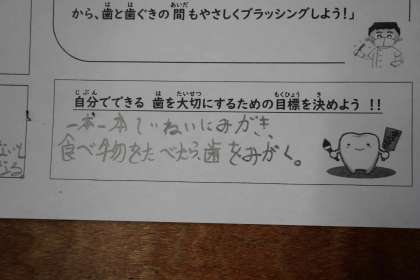 から、歯と歯ぐきの間もやさしくブラッシングしよう!」
自分でできる 歯を大切にするための目標を決めよう !!
一本一本ていねいにみがき、
食べ物をたべたら、歯をみがく。